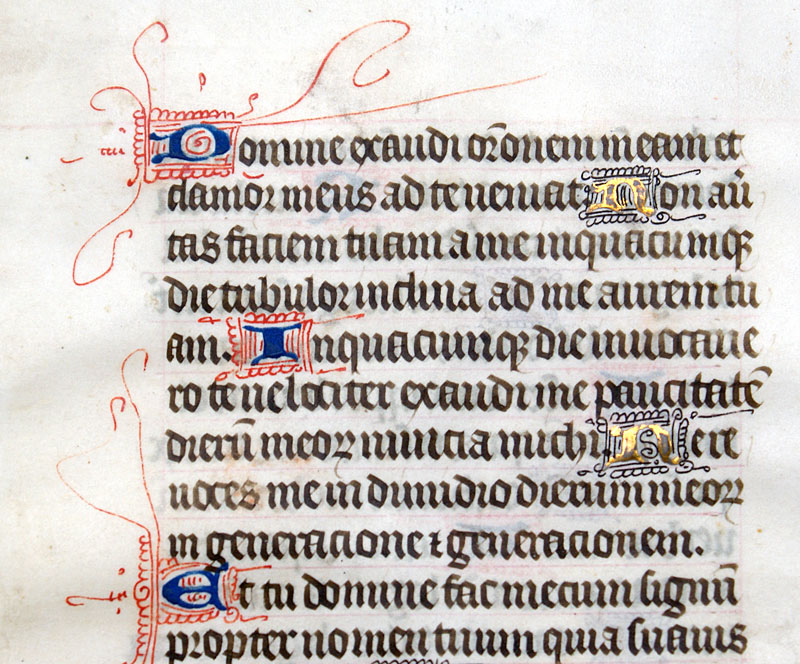 Domine exaudi or̄onem meam et
clamor meus ad te ueniat Non au̅
tas faciem tuam a me inquacumqꝫ
die tribulor inclina ad me aurem tu
am. Inquacumqꝫ die inuocaue
ro te uelociter exaudi me paucitatē
dierū meoꝝ nuncia michi Ne re
uoces me in dimidio dierum meoꝝ
in generacione ⁊ generacionem.
Et tu domine fac mecum signū
propter nomen tuum quia suauis